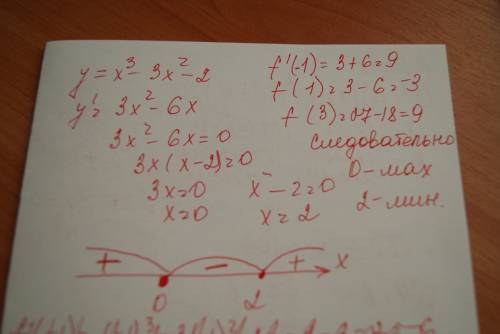 y = x³ - 3x² - 2
y' = 3x² - 6x
3x² - 6x = 0
3x(x-2) = 0
3x = 0 x - 2 = 0
x = 0 x = 2
f'(-1) = 3 + 6 = 9
f(1) = 3 - 6 = -3
f(3) = 27 - 18 = 9
Следовательно
0 - мах
2 - мин.
+ - + x
0 2